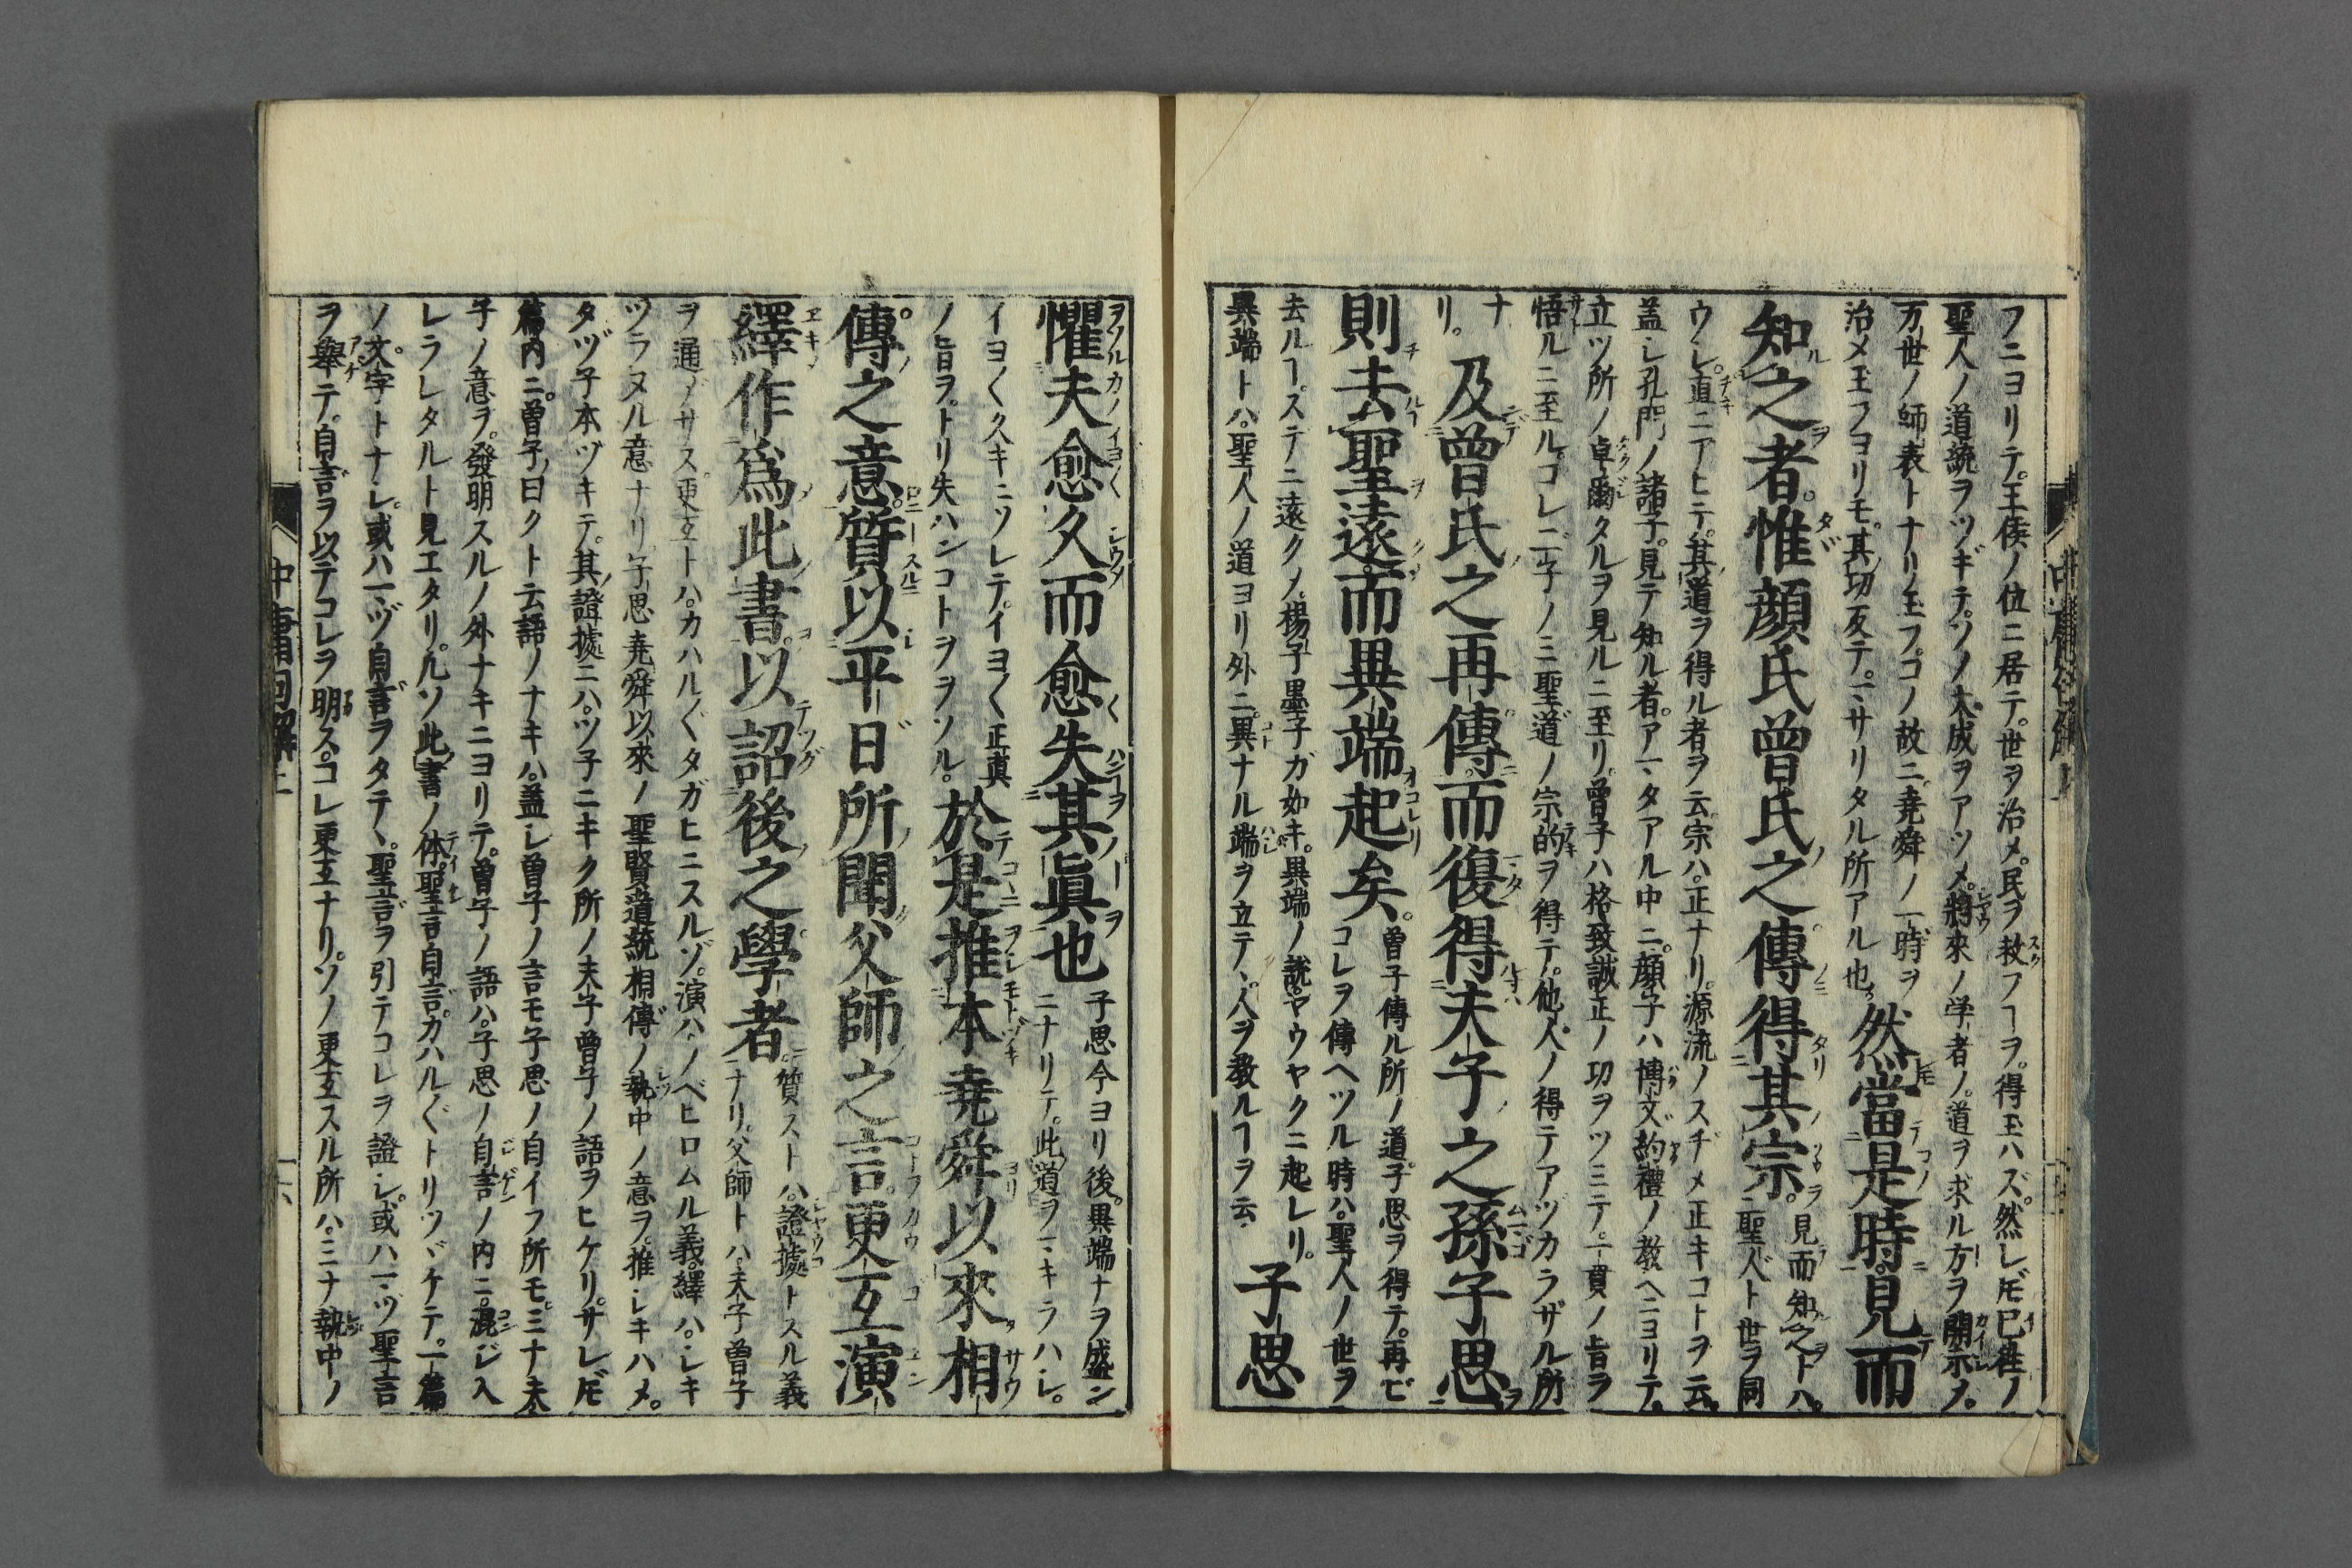 フニヨリテ。王侯ノ位ニ居テ。世ヲ治メ。民ヲ救フヿヲ。得玉ハズ。然レ𪜈已徃ノ
聖人ノ道統ヲツギテ。ソノ大成ヲアツメ。將來ノ学者ノ。道ヲ求ル方ヲ開示メ。
万世ノ師表トナリ玉フ。コノ故ニ。堯舜ノ一時ヲ
治メ玉フヨリモ。其功反テ。マサリタル所アル也。然當是時見而
知之者。惟顔氏曾氏之傳得其宗。見而知之トハ。
聖人ト世ヲ同
ウシ。直ニアヒテ。其道ヲ得ル者ヲ云。宗ハ。正ナリ。源流ノスヂメ正キコトヲ云。
蓋シ孔門ノ諸子。見テ知ル者。アマタアル中ニ。顔子ハ博文約禮ノ教ヘニヨリテ。
立ツ所ノ卓爾タルヲ見ルニ至リ。曾子ハ格致誠正ノ功ヲツミテ。一貫ノ旨ヲ
悟ルニ至ル。コレ二子ノミ聖道ノ宗的ヲ得テ。他人ノ得テアヅカラザル所
ナリ。及曾氏之再傳而復得夫子之孫子思
則去聖遠而異端起矣。曾子傳ル所ノ道。子思ヲ得テ。再ビ
コレヲ傳ヘツル時ハ。聖人ノ世ヲ
去ルヿ。ステニ遠クメ。楊子墨子ガ如キ。異端ノ説。ヤウヤクニ起レリ。
異端トハ。聖人ノ道ヨリ外ニ。異ナル端ヲ立テヽ。人ヲ教ルヿヲ云。子思
懼夫愈久而愈失其眞也子思今ヨリ後。異端ナヲ盛ン
ニナリテ。此道ヲマキラハシ。
イヨ〱久キニソレテ。イヨ〱正眞
ノ旨ヲ。トリ失ハンコトヲヲソル。於是推本堯舜以來相
傳之意。質以平日所聞父師之言更互演
繹作爲此書。以詔後之學者。質ストハ。證據トスル義
ナリ。父師トハ。夫子曾子
ヲ通ノサス。更互トハ。カハル〲タガヒニスルゾ。演ハ。ノベヒロムル義。繹ハ。シキ
ツラヌル意ナリ。子思堯舜以來ノ聖賢道統相傳ノ執中ノ意ヲ。推シキハメ。
タヅ子本ヅキテ。其證據ニハ。ツ子ニキク所ノ夫子曾子ノ語ヲヒケリ。サレ𪜈
篇内ニ。曾子ノ曰クト云語ノナキハ。蓋シ曾子ノ言モ子思ノ自イフ所モ。ミナ夫
子ノ意ヲ。發明スルノ外ナキニヨリテ。曾子ノ語ハ。子思ノ自言ノ内ニ。混ジ入
レラレタルト見エタリ。凡ソ此書ノ体。聖言自言。カハル〲トリツヾケテ。一篇
ノ文字トナシ。或ハマヅ自言ヲタテヽ。聖言ヲ引テコレヲ證シ。或ハマヅ聖言
ヲ擧テ。自言ヲ以テコレヲ明ス。コレ更互ナリ。ソノ更互スル所ハ。ミナ執中ノ